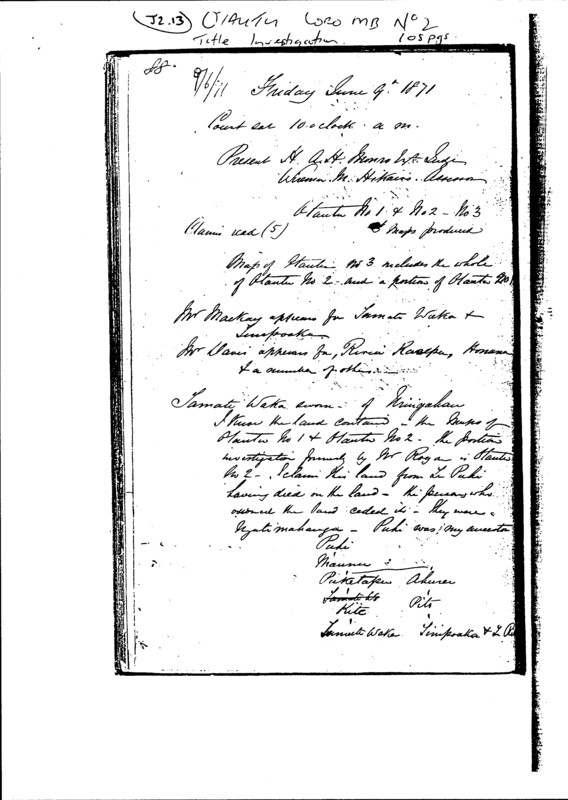 J2.13 OTAUTU CORO MB No 2
Title Investigation. 105 pgs
88.
9/6/71 Friday June 9th 1871
Court sat 10 o'clock a m.
Present H. A. H. Monro Esq Judge
Wiremu M. Hikairo. Assessor
Otautu No 1 & No 2 - No 3
Claim read (5) 3 Maps produced
Map of Otautu No 3 includes the whole
of Otautu No 2 and a portion of Otautu No 1
Mr Mackay appears for Tamati Waka &
Tinipoaka
Mr Davis appears for
& a number of others
Tamati Waka sworn - of
I know the land contained in the Maps of
Otautu No 1 & Otautu No 2 - the portion
investigation formerly by Mr Rogan is Otautu
No 2 - I claim this land from Te Puhi
having died on the land - the persons who
owned the land ceded it - they were
Ngatimahanga - Puhi was my ancestor
Puhi
Puketapu
Kite Pito
Tamati Waka Tinipoaka &